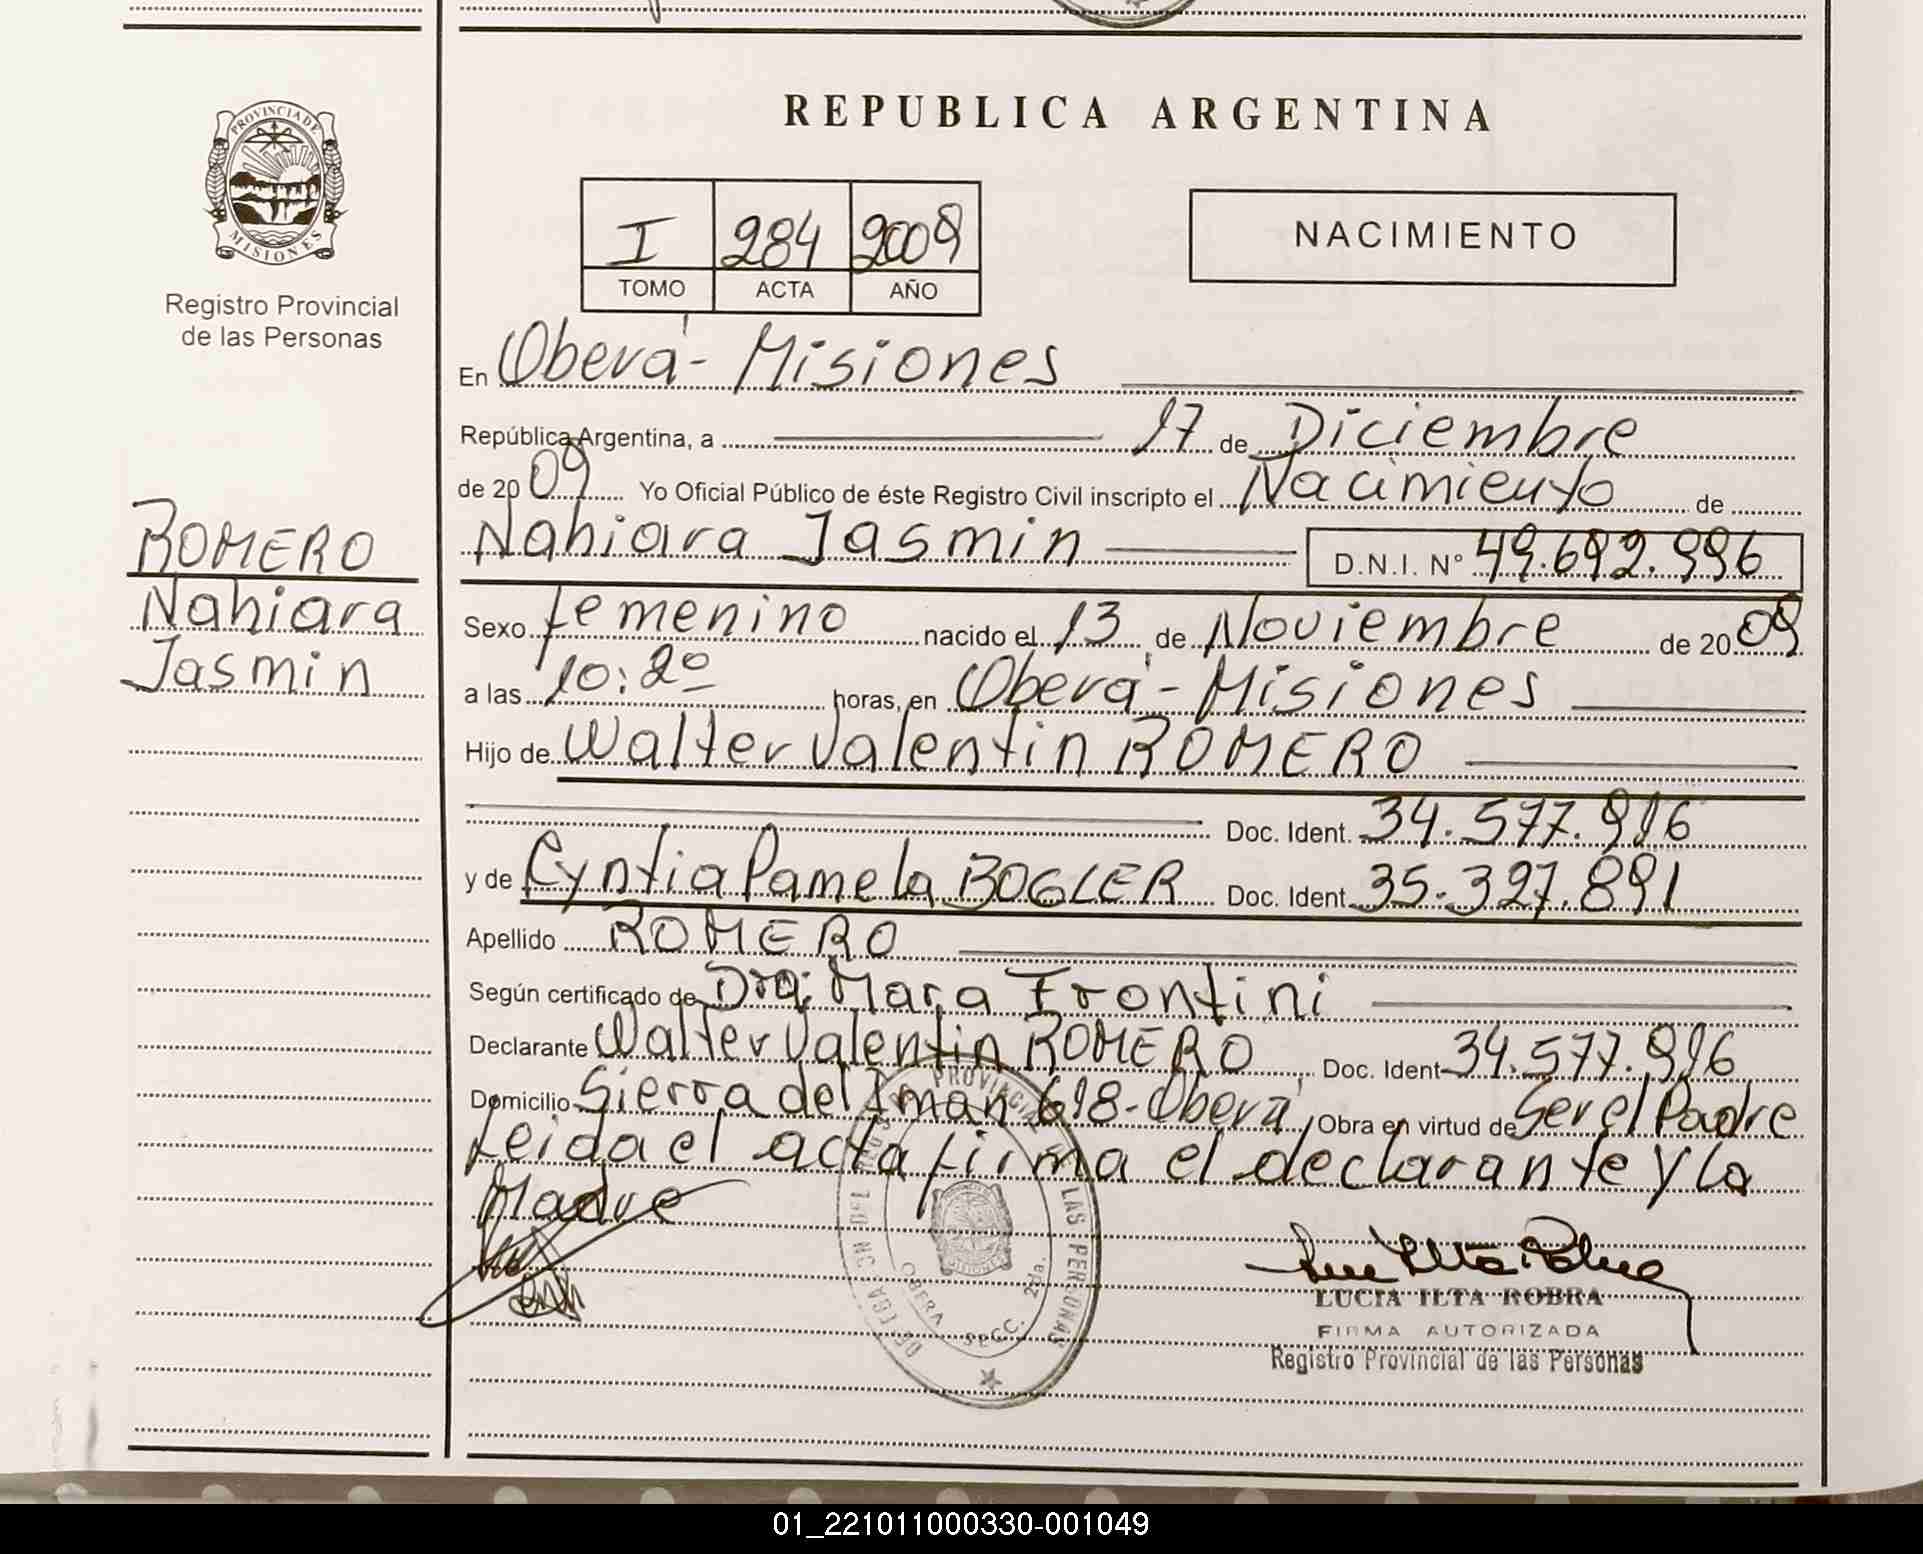 PROVINCIA DE
MISIONES
Registro Provincial
de las Personas
ROMERO
Nahiara
Jasmin
REPUBLICA ARGENTINA
I 284 2009
TOMO ACTA AÑO
NACIMIENTO
En Oberá - Misiones
República Argentina, a 17 de Diciembre
de 2009 Yo Oficial Público de éste Registro Civil inscripto el Nacimiento de
Nahiara Jasmin D.N.I. N° 49.692.996
Sexo femenino nacido el 13 de Noviembre de 2009
a las 10:20 horas, en Oberá - Misiones
Hijo de Walter Valentin ROMERO
Doc. Ident. 34.577.916
y de Cyntia Pamela BOGLER Doc. Ident. 35.327.891
Apellido ROMERO
Según certificado de Dra. Mara Frontini
Declarante Walter Valentin ROMERO Doc. Ident 34.577.916
Domicilio Sierra del Iman 618 - Oberá Obra en virtud de Ser el Padre
Leida el acta firma el declarante y la
Madre
DELEGACION DEL PROVINCIAL DE LAS PERSONAS
OBERA SECC. 2da.
LUCIA ILTA ROBRA
FIRMA AUTORIZADA
Registro Provincial de las Personas
01_221011000330-001049